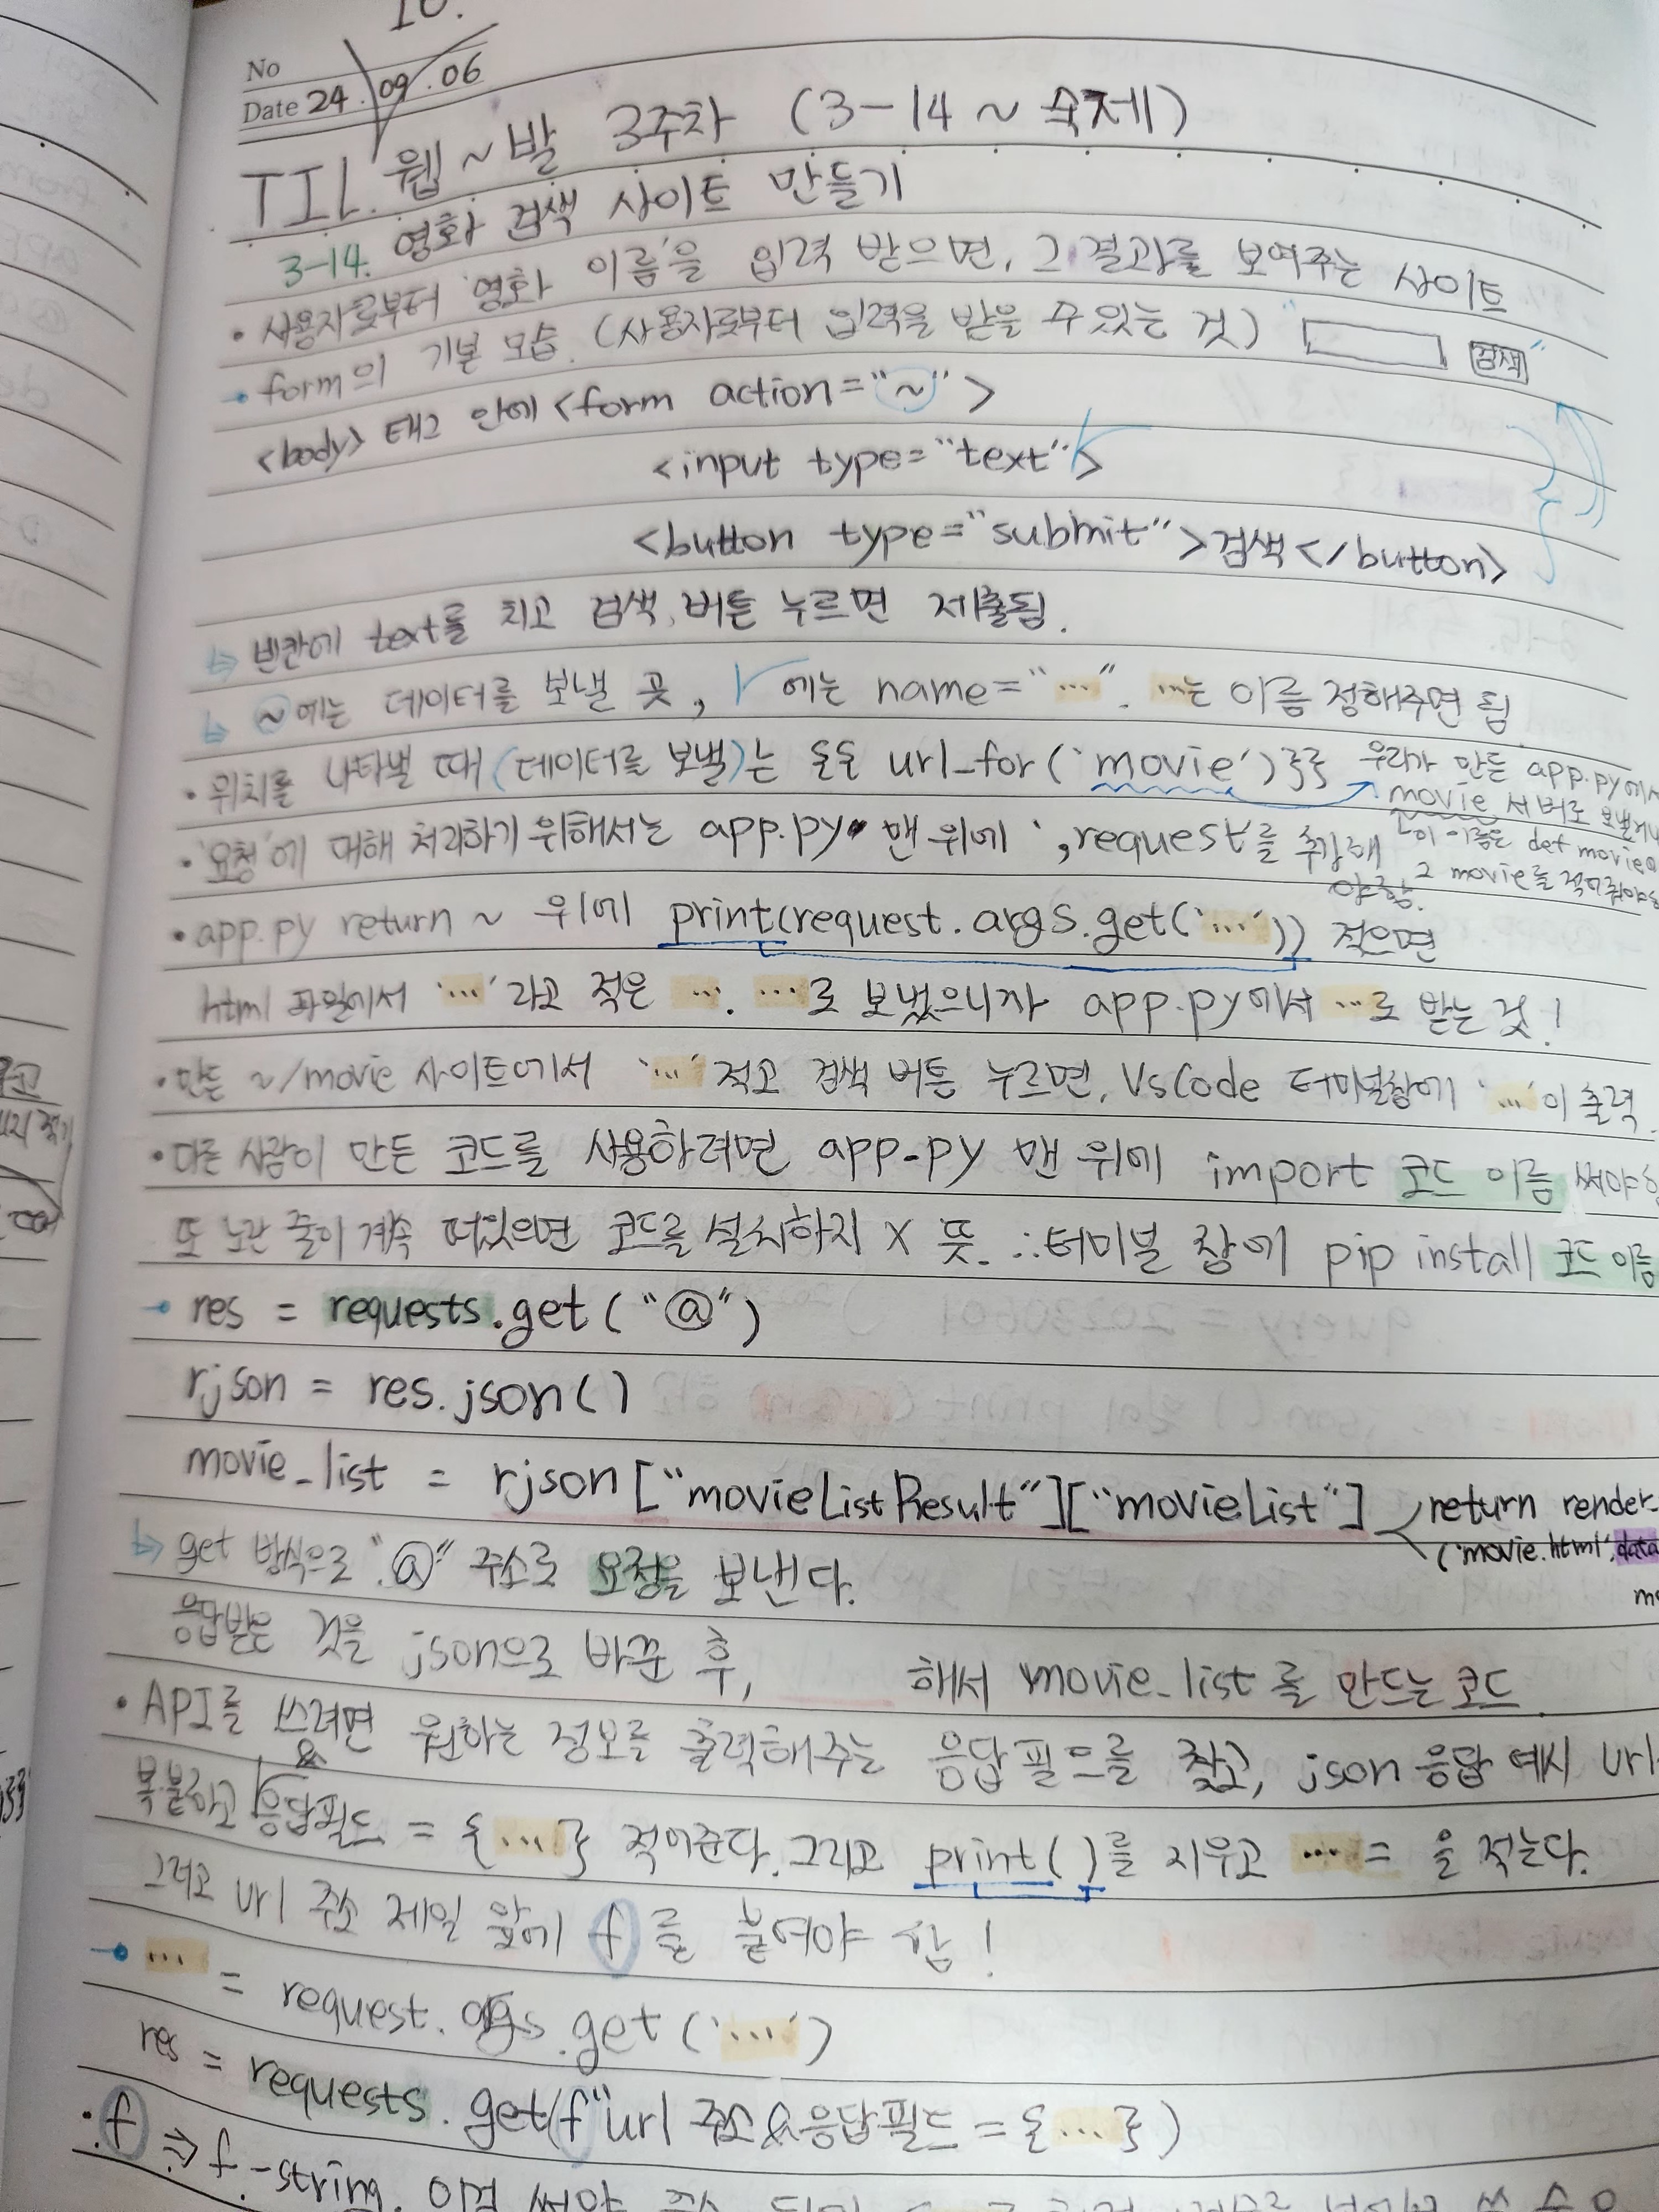 10.
No
Date 24 . 09 . 06
TIL. 웹~발 3주차 (3-14 ~ 숙제)
3-14. 영화 검색 사이트 만들기
• 사용자로부터 '영화 이름'을 입력 받으면, 그 결과를 보여주는 사이트
form의 기본 모습. (사용자로부터 입력을 받을 수 있는 것) " 검색 "
<body> 태그 안에 <form action="~">
<input type="text" >
<button type="submit">검색</button>
↳ 빈칸에 text를 치고 검색 버튼 누르면 제출됨.
↳ ~에는 데이터를 보낼 곳, √에는 name="…". …는 이름 정해주면 됨
• 위치를 나타낼 때(데이터를 보낼)는 {{ url_for('movie')}} 우리가 만든 app.py에서
movie 서버로
• '요청'에 대해 처리하기 위해서는 app.py 맨 위에 ', request'를 추가해야함.
이 이름은 def movie
movie를 적어줘야
• app.py return ~ 위에 print(request.args.get('…')) 적으면
html 파일에서 '…'라고 적은 …. …로 보냈으니까 app.py에서 …로 받는 것!
• 만든 ~/movie 사이트에서 '…' 적고 검색 버튼 누르면, VsCode 터미널창에 '…'이 출력.
• 다른 사람이 만든 코드를 사용하려면 app.py 맨 위에 import 코드 이름 써야
또 노란 줄이 계속 떠있으면 코드를 설치하지 X 뜻. ∴터미널 창에 pip install 코드 이름
res = requests.get("@")
rjson = res.json()
movie_list = rjson["movieListResult"]["movieList"] return render_
('movie.html', data
↳ get 방식으로 "@" 주소로 요청을 보낸다.
응답받은 것을 json으로 바꾼 후, ____ 해서 movie_list를 만드는 코드.
• API를 쓰려면 원하는 정보를 출력해주는 응답필드를 찾고, json 응답 예시 url
복붙하고 & 응답필드 = {…} 적어준다. 그리고 print()를 지우고 … = 을 적는다.
그리고 url 주소 제일 앞에 f를 붙여야 함!
… = request.args.get('…')
res = requests.get(f"url 주소&응답필드={…})
• f ⇒ f-string.